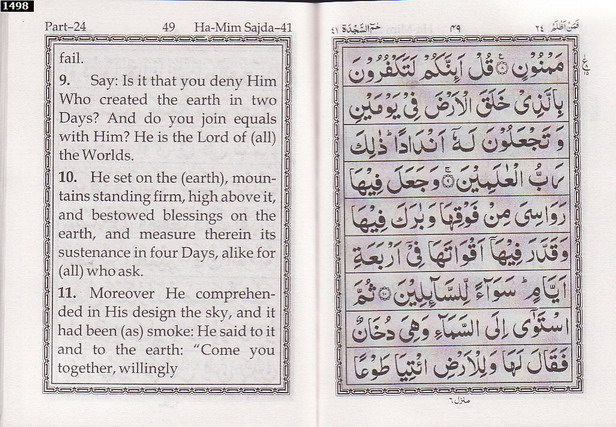 1498
Part–24 49 Ha-Mim Sajda–41
fail.
9. Say: Is it that you deny Him
Who created the earth in two
Days? And do you join equals
with Him? He is the Lord of (all)
the Worlds.
10. He set on the (earth), moun-
tains standing firm, high above it,
and bestowed blessings on the
earth, and measure therein its
sustenance in four Days, alike for
(all) who ask.
11. Moreover He comprehen-
ded in His design the sky, and it
had been (as) smoke: He said to it
and to the earth: “Come you
together, willingly
فَمَنْ اَظْلَمُ ٢٤ ۴۹ حٰمٓ السَّجْدَة ٤١
مَمْنُوْنٍ ۝ قُلْ اَىِٕنَّكُمْ لَتَكْفُرُوْنَ
بِالَّذِىْ خَلَقَ الْاَرْضَ فِىْ يَوْمَيْنِ
وَ تَجْعَلُوْنَ لَهٗۤ اَنْدَادًا ؕ ذٰلِكَ
رَبُّ الْعٰلَمِيْنَ ۝ وَ جَعَلَ فِيْهَا
رَوَاسِىَ مِنْ فَوْقِهَا وَ بٰرَكَ فِيْهَا
وَ قَدَّرَ فِيْهَاۤ اَقْوَاتَهَا فِىْۤ اَرْبَعَةِ
اَيَّامٍ ؕ سَوَآءً لِّلسَّآىِٕلِيْنَ ۝ ثُمَّ
اسْتَوٰۤى اِلَى السَّمَآءِ وَهِىَ دُخَانٌ
فَقَالَ لَهَا وَ لِلْاَرْضِ ائْتِيَا طَوْعًا
منزل ٦